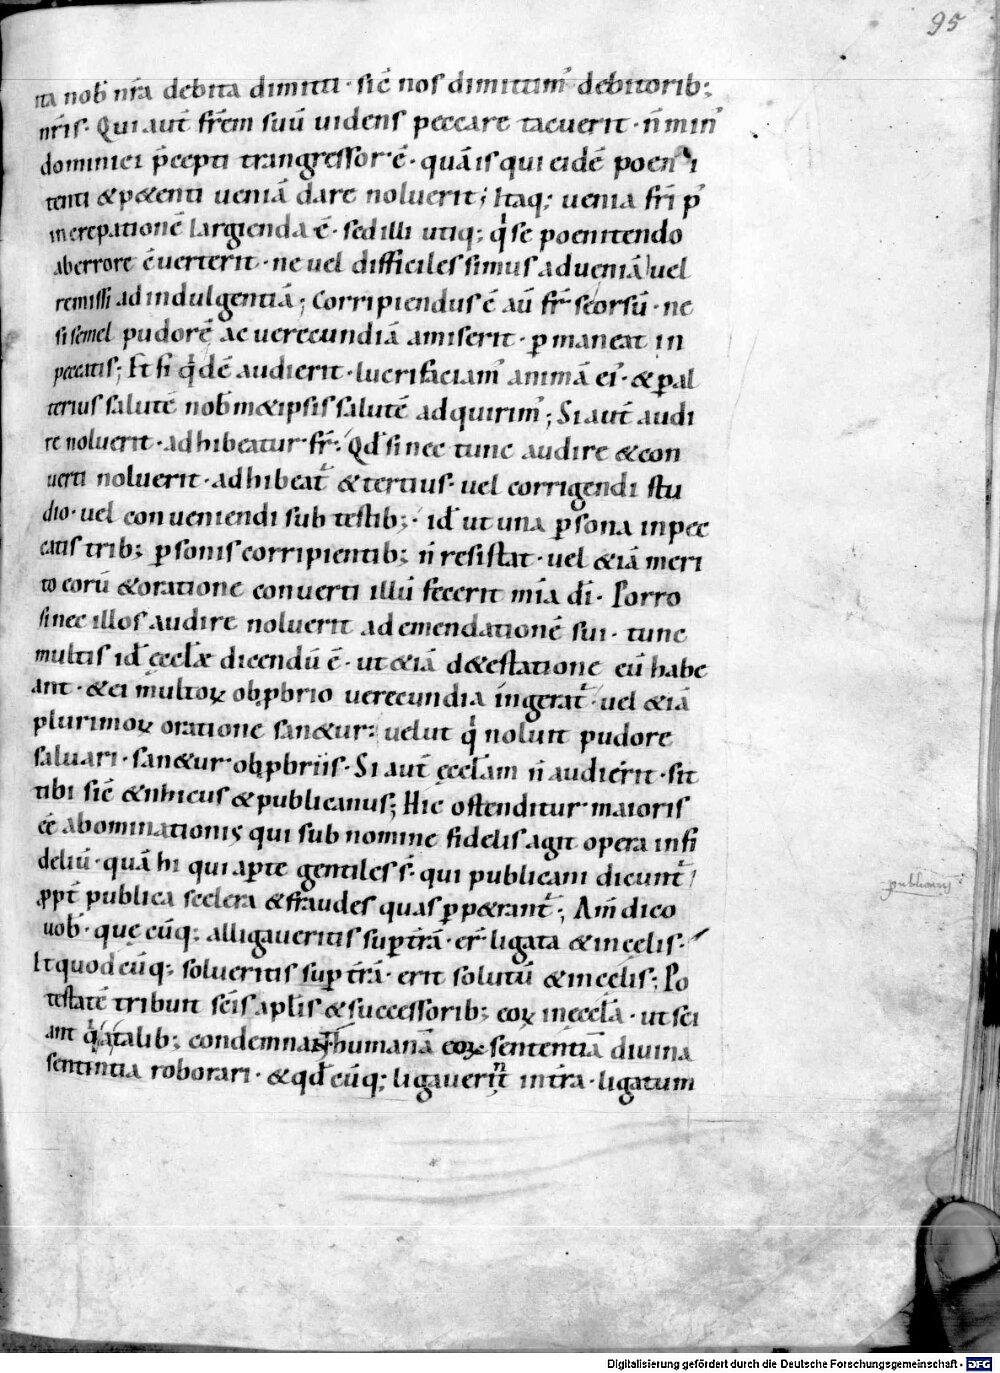 95
ita nob̄ nr̄a debita dimitti · sic̄ nos dimittim᾽ debitorib;
nr̄is · Qui aut̄ fr̄em suū uidens peccare tacuerit · n̄ min᾽
dominici p̄cepti trangressor · ē · quā is qui eidē poeni
tenti & p&enti ueniā dare noluerit; Itaq; uenia fr̄i p᾽
increpationē largienda ē · sed illi utiq; q̇ se poenitendo
ab errore euerterit · ne uel difficiles simus ad ueniā uel
remissi ad indulgentiā; Corripiendus ē aū fr̄ seorsū · ne
si semel pudorē ac uerecundiā amiserit · ꝑmaneat in
peccatis; Et si q̇dē audierit · lucrifaciam᾽ animā ei᾽ · & ꝑ al
terius salutē nob̄ m&ipsis salutē adquirim᾽; Si aut̄ audi
re noluerit · adhibeatur · fr̄; Qd̄ si nec tunc audire & con
uerti noluerit · adhibeat᾽ & tertius · uel corrigendi stu
dio · uel conueniendi sub testib; · id̄ ut una ꝑsona in pec
catis trib; ꝑsonis corripientib; n̄ resistat · uel &iā meri
to eorū & oratione conuerti illū fecerit mīa dī · Porro
si nec illos audire noluerit ad emendationē sui · tunc
multis id̄ ęccłæ dicendū ē · ut &iā d&estatione eū habe
ant · & ei multoꝝ obꝓbrio uerecundia ingerat᾽ · uel &iā
plurimoꝝ oratione san&ur: uelut q̇ noluit pudore
saluari · san&ur obꝓbriis · Si aut̄ ęccłam n̄ audierit · sit
tibi sic̄ &hnicus & publicanus; Hic ostenditur · maioris
ēē abominationis qui sub nomine fidelis agit opera infi
deliū · quā hi qui aꝑte gentiles s̄ · qui publicani dicunt᾽
ꝓpt̄ publica scelera & fraudes quas ꝑp&rant᾽; Am̄ dico
uob̄ · quę cūq; alligaueritis suꝑ t̄rā · er̄ ligata & in cęlis ·
Et quodcūq; solueritis suꝑ t̄rā · erit solutū & in cęlis; Po
testatē tribuit sc̄is ap̄lis & successorib; eoꝝ in ęccłā · ut sci
ant q̇ a talib; condemnant᾽ humanā eoꝝ sententiā diuina
sentintia roborari · & qd̄cūq; ligauerint in t̄ra · ligatum
publicanus
Digitalisierung gefördert durch die Deutsche Forschungsgemeinschaft - DFG